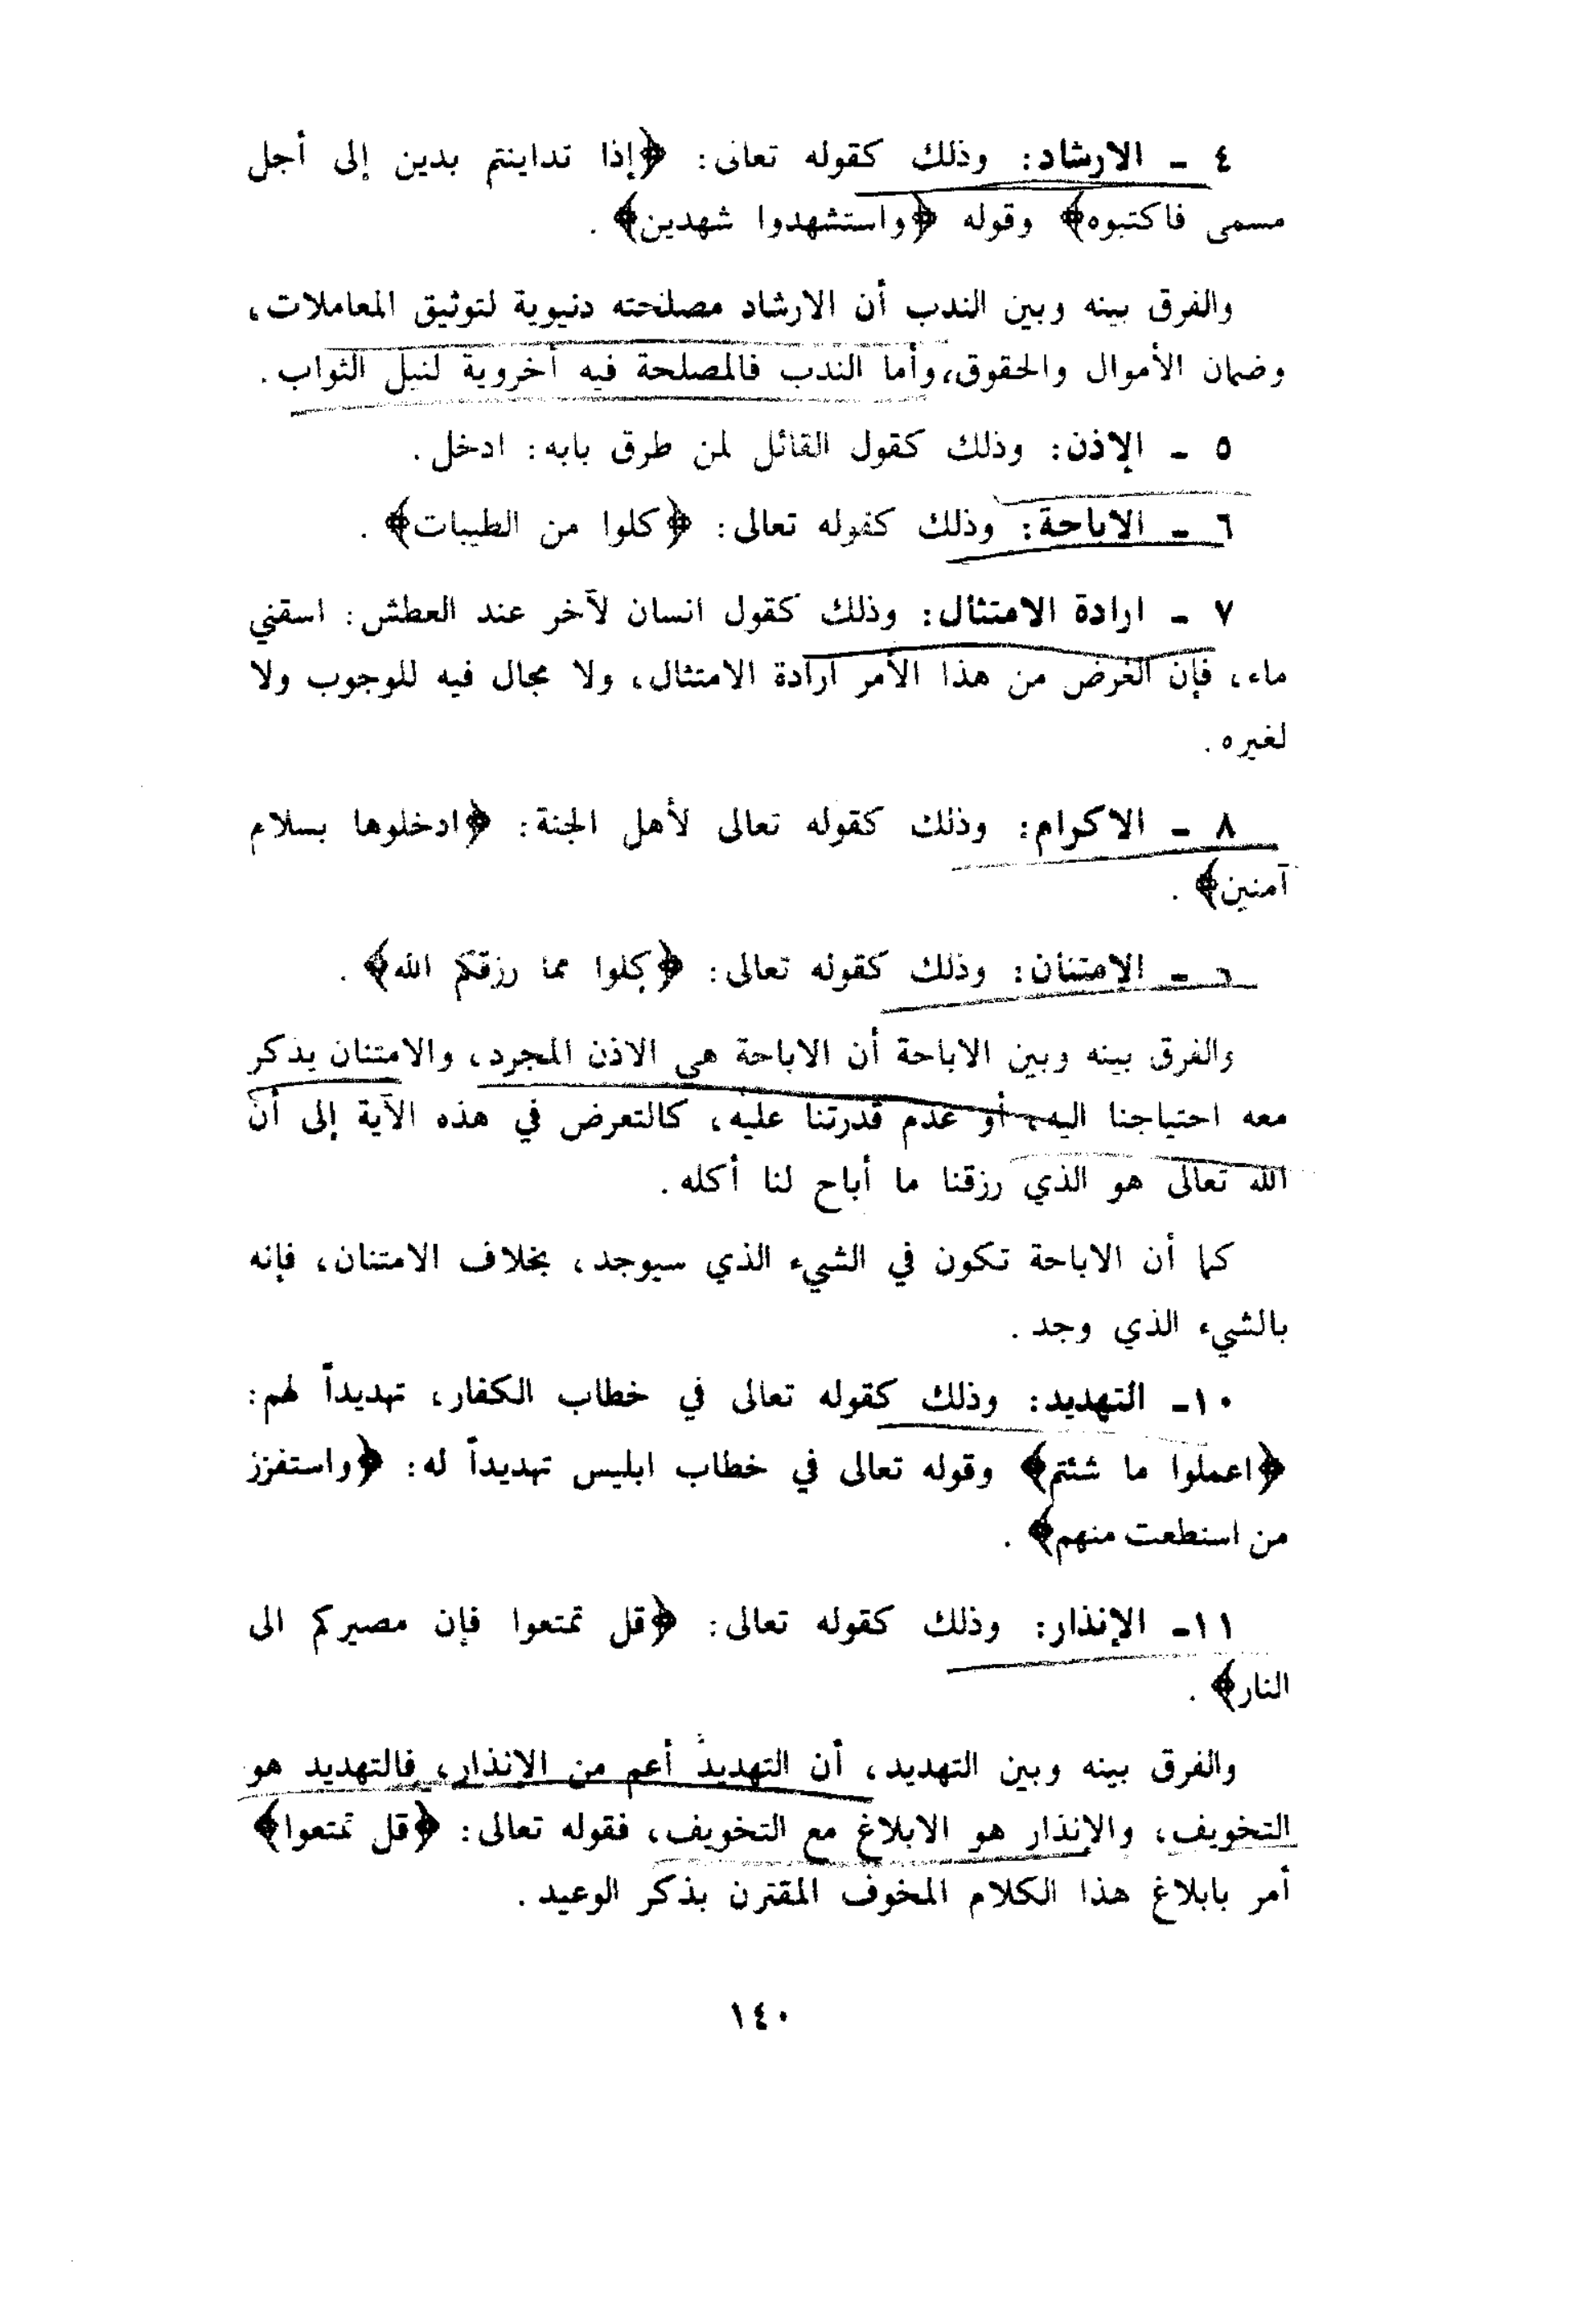 ٤ - الارشاد: وذلك كقوله تعالى: ﴿إذا تداينتم بدين إلى أجل
مسمى فاكتبوه﴾ وقوله ﴿واستشهدوا شهدين﴾ .
والفرق بينه وبين الندب أن الارشاد مصلحته دنيوية لتوثيق المعاملات،
وضمان الأموال والحقوق، وأما الندب فالمصلحة فيه أخروية لنيل الثواب.
٥ - الإذن: وذلك كقول القائل لمن طرق بابه: ادخل.
٦ - الاباحة: وذلك كقوله تعالى: ﴿كلوا من الطيبات﴾ .
٧ - ارادة الامتثال: وذلك كقول انسان لآخر عند العطش: اسقني
ماء، فإن الغرض من هذا الأمر ارادة الامتثال، ولا مجال فيه للوجوب ولا
لغيره.
٨ - الاكرام: وذلك كقوله تعالى لأهل الجنة: ﴿ادخلوها بسلام
آمنين﴾ .
- الامتنان: وذلك كقوله تعالى: ﴿كلوا مما رزقكم الله﴾ .
والفرق بينه وبين الاباحة أن الاباحة هي الاذن المجرد، والامتنان يذكر
معه احتياجنا اليه، أو عدم قدرتنا عليه، كالتعرض في هذه الآية إلى أن
الله تعالى هو الذي رزقنا ما أباح لنا أكله.
كما أن الاباحة تكون في الشيء الذي سيوجد، بخلاف الامتنان، فإنه
بالشيء الذي وجد.
١٠- التهديد: وذلك كقوله تعالى في خطاب الكفار، تهديداً لهم:
﴿اعملوا ما شئتم﴾ وقوله تعالى في خطاب ابليس تهديداً له: ﴿واستفزز
من استطعت منهم﴾ .
١١- الإنذار: وذلك كقوله تعالى: ﴿قل تمتعوا فإن مصيركم الى
النار﴾ .
والفرق بينه وبين التهديد، أن التهديد أعم من الإنذار، فالتهديد هو
التخويف، والإنذار هو الابلاغ مع التخويف، فقوله تعالى: ﴿قل تمتعوا﴾
أمر بابلاغ هذا الكلام المخوف المقترن بذكر الوعيد.
١٤٠